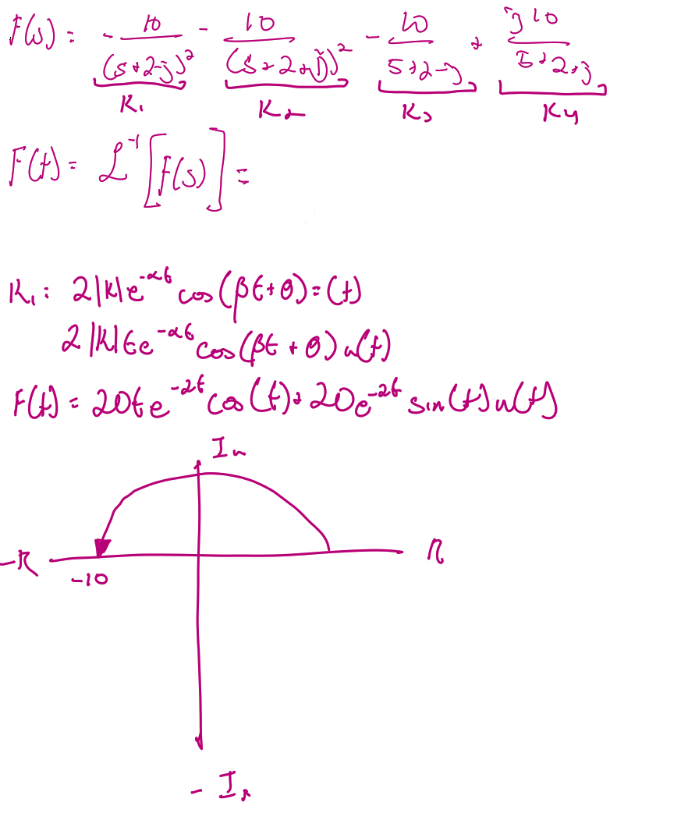 F(s) = - 10/(s+2-j)² - 10/(s+2+j)² - 10/(s+2-j) + j10/(s+2+j)
K₁ K₂ K₃ K₄
F(t) = ℒ⁻¹[F(s)] =
K₁: 2|K|e^(-αt) cos(βt+θ) = (t)
2|K|te^(-αt) cos(βt+θ)u(t)
F(t) = 20te^(-2t) cos(t) + 20e^(-2t) sin(t)u(t)
Im
-R R
-10
- Im